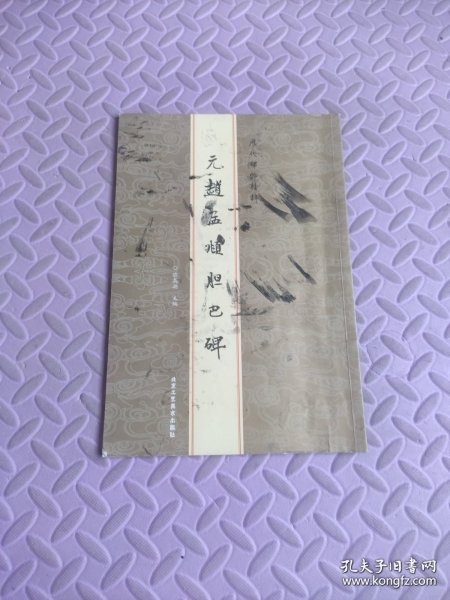 历代碑帖精粹
元趙孟頫胆巴碑
主编
北京工艺美术出版社
孔夫子旧书网
www.kongfz.com